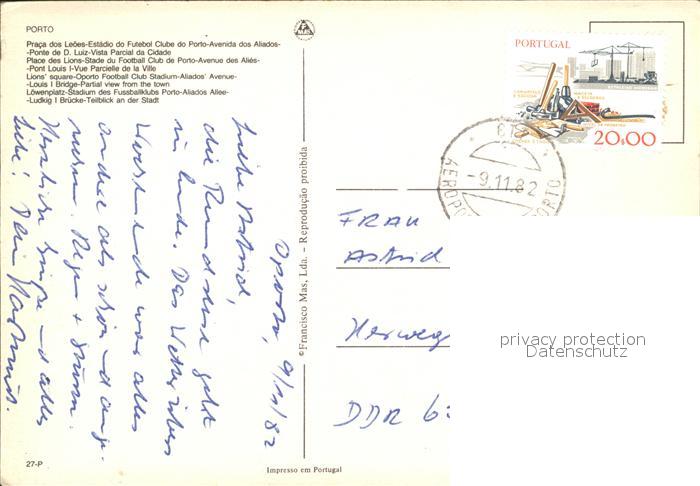 PORTO
Praça dos Leões-Estádio do Futebol Clube do Porto-Avenida dos Aliados-
-Ponte de D. Luiz-Vista Parcial da Cidade
Place des Lions-Stade du Football Club de Porto-Avenue des Aliés-
-Pont Louis I-Vue Parcielle de la Ville
Lions' square-Oporto Football Club Stadium-Aliados' Avenue-
-Louis I Bridge-Partial view from the town
Löwenplatz-Stadium des Fussballklubs Porto-Aliados Allee-
-Ludkig I Brücke-Teilblick an der Stadt
Oporto, 9/11/82
Liebe Astrid,
die Rundreise geht
zu Ende. Das Wetter übers
Wochenende war alles
andere als schön und ange-
nehm. Regen + Sturm.
Herzliche Grüße und alles
Liebe! Dein
©Francisco Mas, Lda. - Reprodução proibida
PORTUGAL
20$00
CTT
-9.11.82
AEROPORTO PORTO
FRAU
Astrid
Herweg
DDR 6
privacy protection
Datenschutz
27-P
Impresso em Portugal